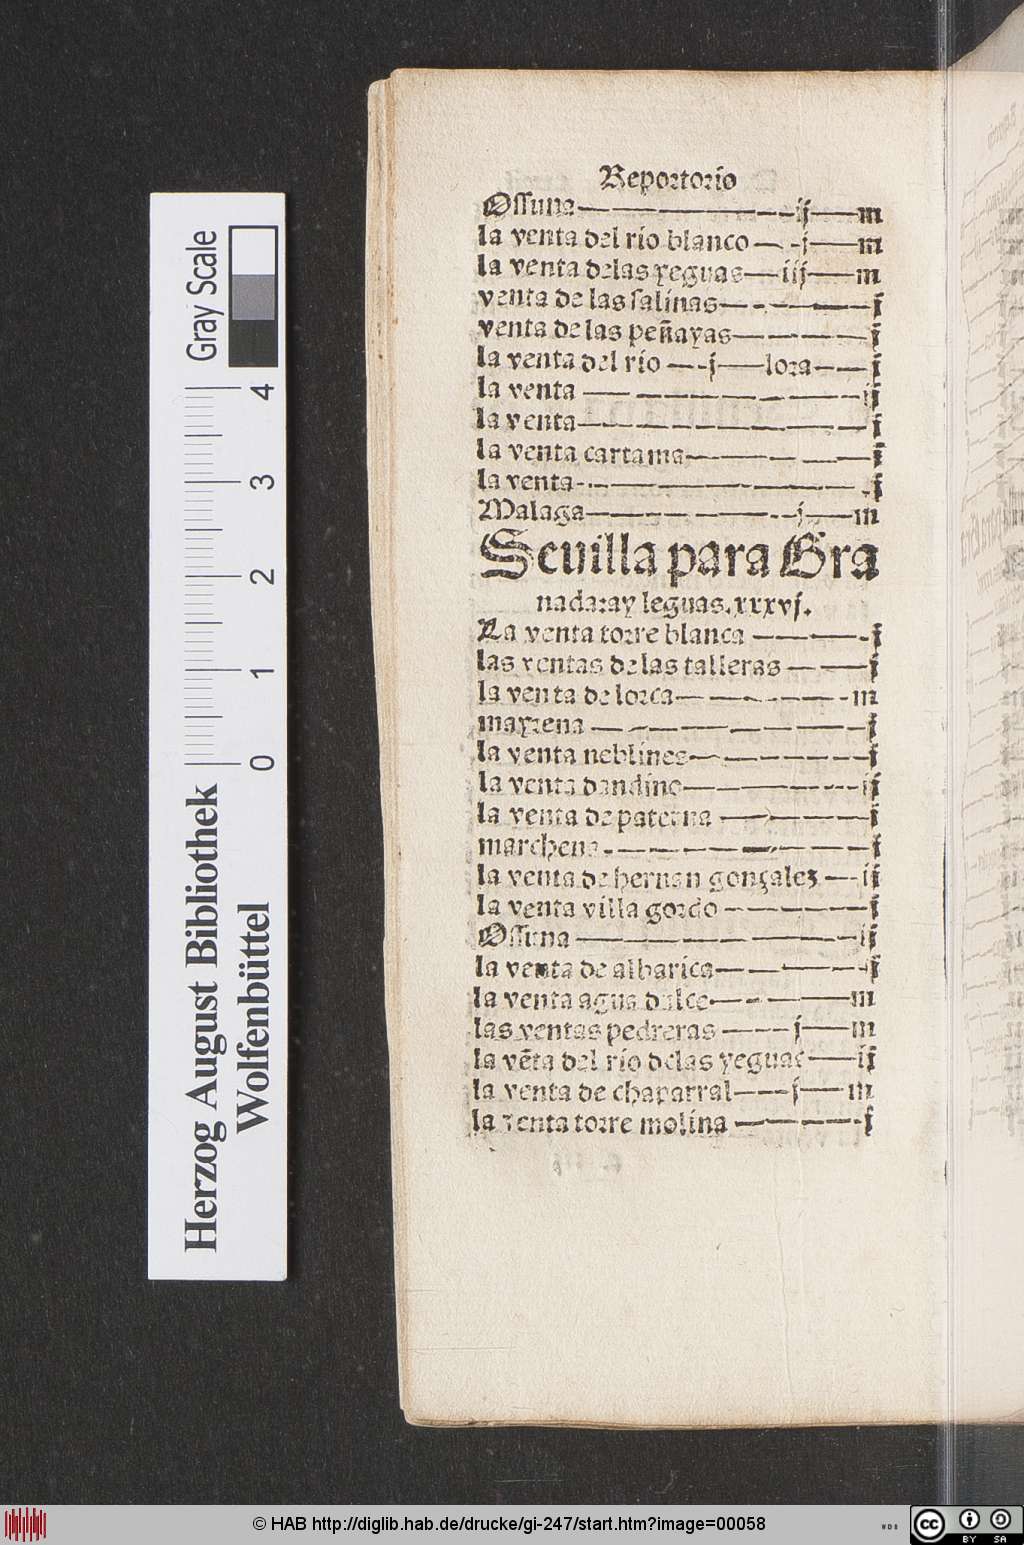 Reportorio
Ossuna — ij — m
la venta del rio blanco — j — m
la venta delas yeguas — iij — m
venta de las salinas — j
venta de las peñayas — j
la venta del rio — j — lora — j
la venta — ij
la venta — j
la venta cartama — j
la venta — j
Malaga — j — m
Seuilla para Gra
nada: ay leguas. xxxvj.
La venta torre blanca — j
las ventas de las talleras — j
la venta de lorca — m
mayrena — j
la venta neblines — j
la venta dandino — ij
la venta de paterna — j
marchena — j
la venta de hernan gonçalez — ij
la venta villa gordo — j
Ossuna — ij
la venta de albarica — j
la venta agua dulce — m
las ventas pedreras — j — m
la vẽta del rio delas yeguas — ij
la venta de chaparral — j — m
la venta torre molina — j
Gray Scale
0 1 2 3 4
Herzog August Bibliothek
Wolfenbüttel
© HAB http://diglib.hab.de/drucke/gi-247/start.htm?image=00058
WDB
cc BY SA